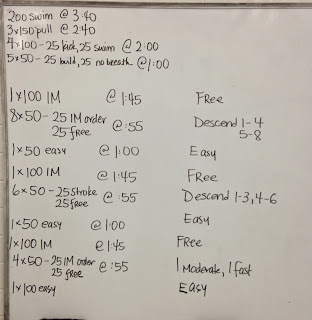 200 swim @ 3:40
3x150 pull @ 2:40
4x100-25 kick, 25 swim @ 2:00
5x50-25 build, 25 no breath @ 1:00
1x100 IM @ 1:45 Free
8x50-25 IM order @ :55 Descend 1-4
25 free 5-8
1x50 easy @ 1:00 Easy
1x100 IM @ 1:45 Free
6x50-25 stroke @ :55 Descend 1-3, 4-6
25 free
1x50 easy @ 1:00 Easy
1x100 IM @ 1:45 Free
4x50-25 IM order @ :55 1 Moderate, 1 fast
25 free
1x100 easy Easy